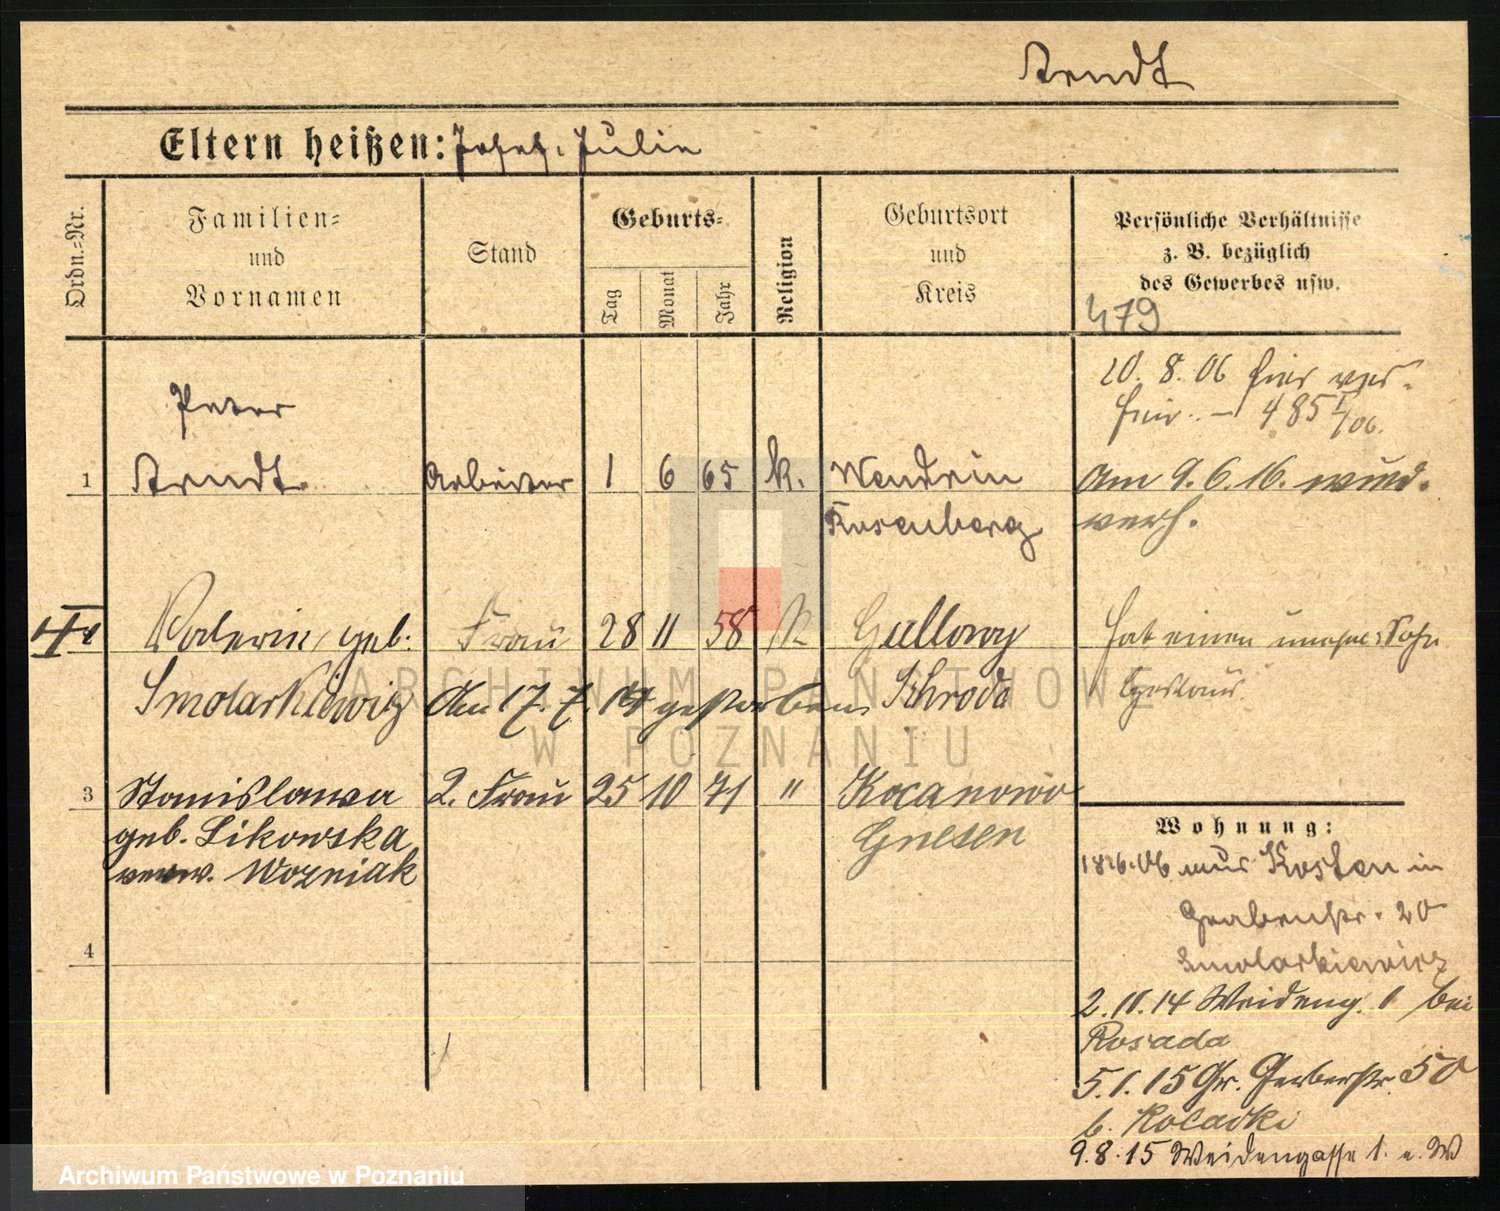 Arndt
Eltern heißen: Josef. Julie
Ordn.-Nr.
Familien-
und
Vornamen
Stand
Geburts-
Tag
Monat
Jahr
Religion
Geburtsort
und
Kreis
Persönliche Verhältnisse
z. B. bezüglich
des Gewerbes usw.
479
20. 8. 06 hier
485
Peter
1 Arndt. Arbeiter 1 6 65 k. Wendrin
Rosenberg
Am 9. 6. 16.
verh.
Valerie, geb. Frau 28 11 58 k Gullowy
Smolarkiewicz Am 17. 7. 14 gestorben. Schroda
Hat einen unehel. Sohn
3 Stanislawa 2. Frau 25 10 71 " Kocanowo
geb. Likowska Gnesen
verw. Wozniak
4
Wohnung:
18.6.06 aus Kosten in
Grabenstr. 20
Smolarkiewicz
2. 11. 14 Weideng. 1 bei
Rosada
5. 1. 15 Gr. Gerberstr. 50
b.
9. 8. 15 Weidengasse 1. e. W
ARCHIWUM PAŃSTWOWE
W POZNANIU
Archiwum Państwowe w Poznaniu